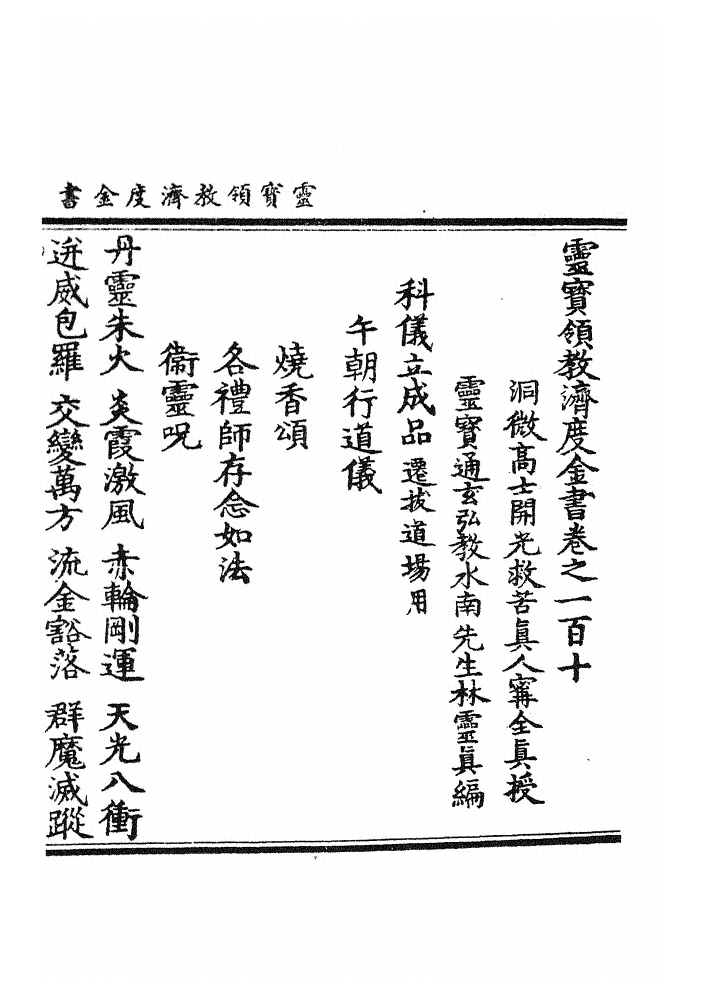 靈寳領教濟度金書
靈寳領教濟度金書卷之一百十
洞微高士開光救苦眞人甯全眞授
靈寳通玄弘教水南先生林靈眞編
科儀立成品 遷拔道場用
午朝行道儀
燒香頌
各禮師存念如法
衞靈呪
丹靈朱火 炎霞激風 赤輪剛運 天光八衝
迸威包羅 交變萬方 流金豁落 群魔滅蹤